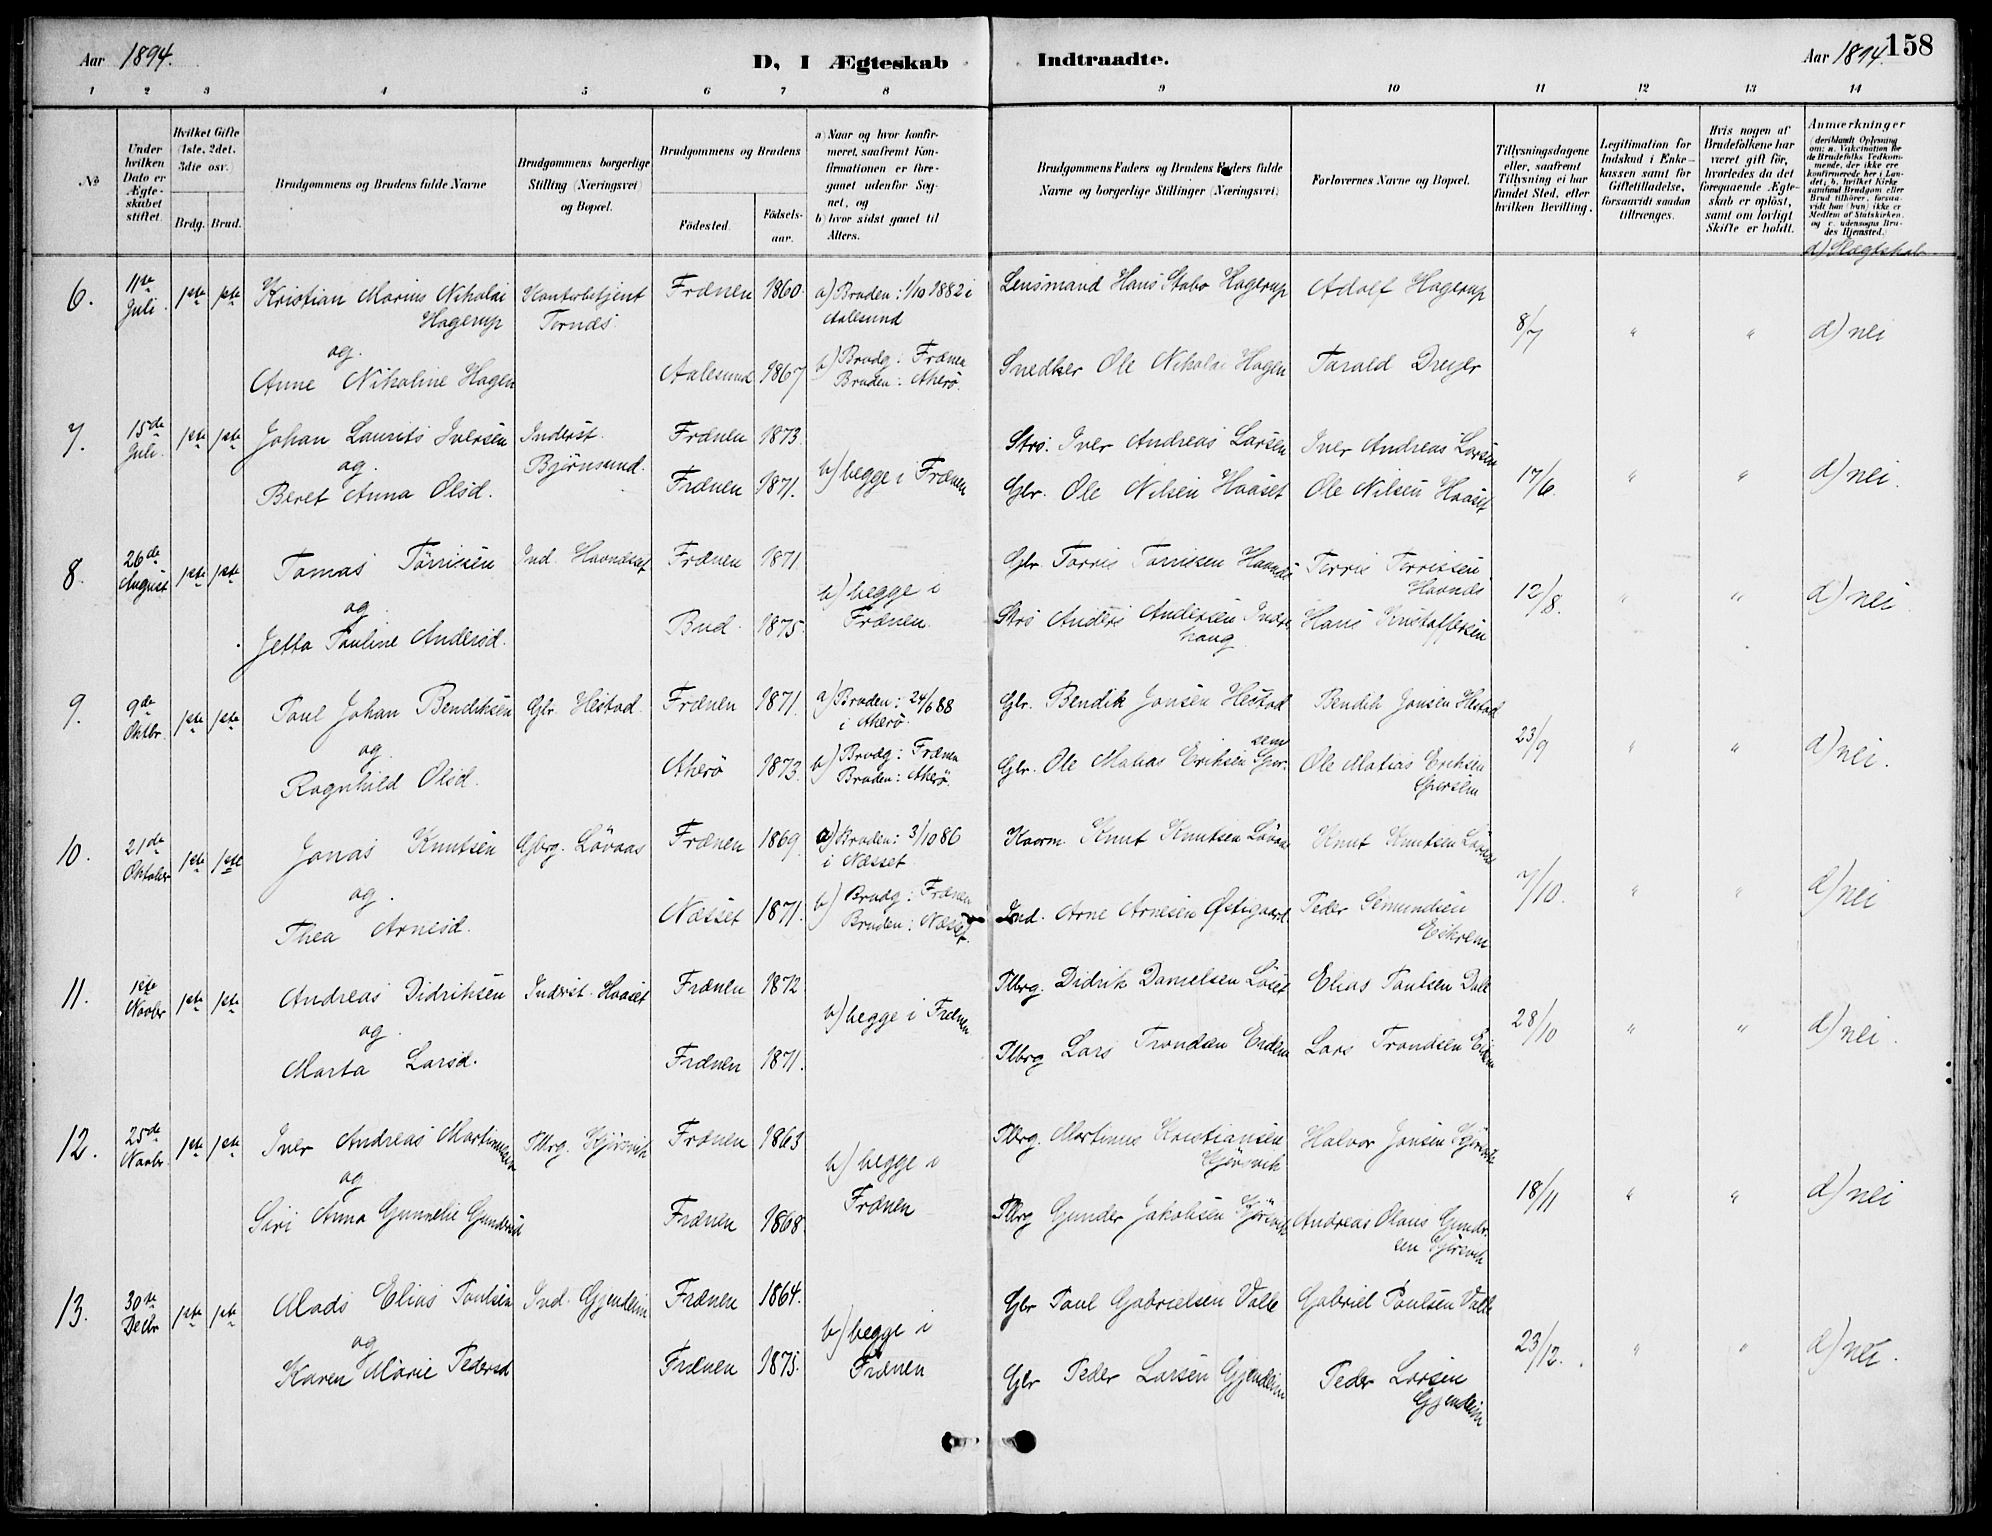 Aar 1894.
D, I Ægteskab Indtraadte.
Aar 1894. 158
1 2 3 4 5 6 7 8 9 10 11 12 13 14
No
Under hvilken Dato er Ægteskabet stiftet.
Hvilket Gifte (1ste, 2det, 3die osv.)
Brdg. Brud.
Brudgommens og Brudens fulde Navne
Brudgommens borgerlige Stilling (Næringsvei) og Bopæl.
Brudgommens og Brudens
Fødested. Fødselsaar.
a) Naar og hvor konfirmeret, saafremt Konfirmationen er foregaaet udenfor Sognet, og
b) hvor sidst gaaet til Alters.
Brudgommens Faders og Brudens Faders fulde Navne og borgerlige Stillinger (Næringsvei)
Forlovernes Navne og Bopæl.
Tillysningsdagene eller, saafremt Tillysning ei har fundet Sted, efter hvilken Bevilling.
Legitimation for Indskud i Enkekassen samt for Giftetilladelse, forsaavidt saadan tiltrænges.
Hvis nogen af Brudefolkene har været gift før, hvorledes da det foregaaende Ægteskab er opløst, samt om lovligt Skifte er holdt.
Anmærkninger (deriblandt Oplysning om: a. Vakcination for de Brudefolks Vedkommende, der ikke ere konfirmerede her i Landet; b. hvilket Kirkesamfund Brudgom eller Brud tilhører, forsaavidt han (hun) ikke er Medlem af Statskirken, og c. udensogns Brudes Hjemsted.)
d) Slægtskab
6. 11te Juli 1ste 1ste Kristian Marius Nikolai Hagerup Kontorbetjent Tornes Frænen 1860 a) Bruden: 1/10 1882 i Aalesund Lensmand Hans Stabo Hagerup Adolf Hagerup 8/7 " " d) nei
og
Anne Nikoline Hagen Aalesund 1867 b) Brudg: Frænen Bruden: Akerö. Snedker Ole Nikolai Hagen Tarald Dreyer
7. 15de Juli 1ste 1ste Johan Laurits Iversen Inderst. Björnsund. Frænen 1873. Strs. Iver Andreas Larsen Iver Andreas Larsen 17/6. " " d) nei.
og
Beret Anna Olsd. Frænen 1871. b) begge i Frænen Gbr. Ole Nilsen Haaset Ole Nilsen Haaset
8. 26de August 1ste 1ste Tomas Torrissen Ind. Havnesset Frænen 1871 Gbr Torris Torrissen Havnes Torris Torrissen Havnes 12/8. " " d) nei
og
Jetta Pauline Andersd. Bud 1875. b) begge i Frænen. Strs Anders Andersen haug Hans Kristoffersen
9. 9de Oktbr. 1ste 1ste Paul Johan Bendiksen Gbr. Hestad. Frænen 1871. a) Bruden: 24/6 88 i Akerö. Gbr. Bendik Jonsen Hestad Bendik Jonsen Hestad 23/9 " " d) nei.
og
Ragnhild Olsd. Akerö 1873. b) Brudg: Frænen Bruden: Akerö. Gbr. Ole Matias Eriksen Gjersem Ole Matias Eriksen Gjersem
10. 21de Oktober 1ste 1ste Jonas Knutsen Gbrg. Lövaas Frænen 1869. a) Bruden: 3/10 86 i Næsset. Kaarm. Knut Knutsen Lövaas Knut Knutsen Lövaas 7/10. " " d) nei
og.
Thea Arnesd. Næsset 1871. b) Brudg: Frænen Bruden: Næsset. Ind. Arne Arnesen Østigaard Peder Semundsen Eikrem
11. 1ste Novbr 1ste 1ste Andreas Didriksen Inderst. Haaset Frænen 1872 Plbrg. Didrik Danielsen Löset Elias Paulsen Dale 28/10 " " d) nei.
og.
Marta Larsd. Frænen 1871. b) begge i Frænen Plbrg Lars Trondsen Eidem Lars Trondsen Eidem
12. 25de Novbr 1ste 1ste Iver Andreas Martinussen Plbrg. Gjörsvik Frænen 1863 Plbrg. Martinus Kristiansen Gjörsvik Halvor Jonsen Gjörsvik 18/11 " " d) nei
og
Siri Anna Gunnelie Gundersd Frænen 1868. b) begge i Frænen Plbrg Gunder Jakobsen Gjörsvik Andreas Olaus Gundersen Gjörsvik
13. 30te Decbr 1ste 1ste Mads Elias Paulsen Ind. Gjendem Frænen 1864. Gbr Paul Gabrielsen Valle Gabriel Paulsen Valle 23/12. " " d) nei.
og
Karen Marie Pedersd Frænen 1875. b) begge i Frænen Gbr Peder Larsen Gjendem Peder Larsen Gjendem